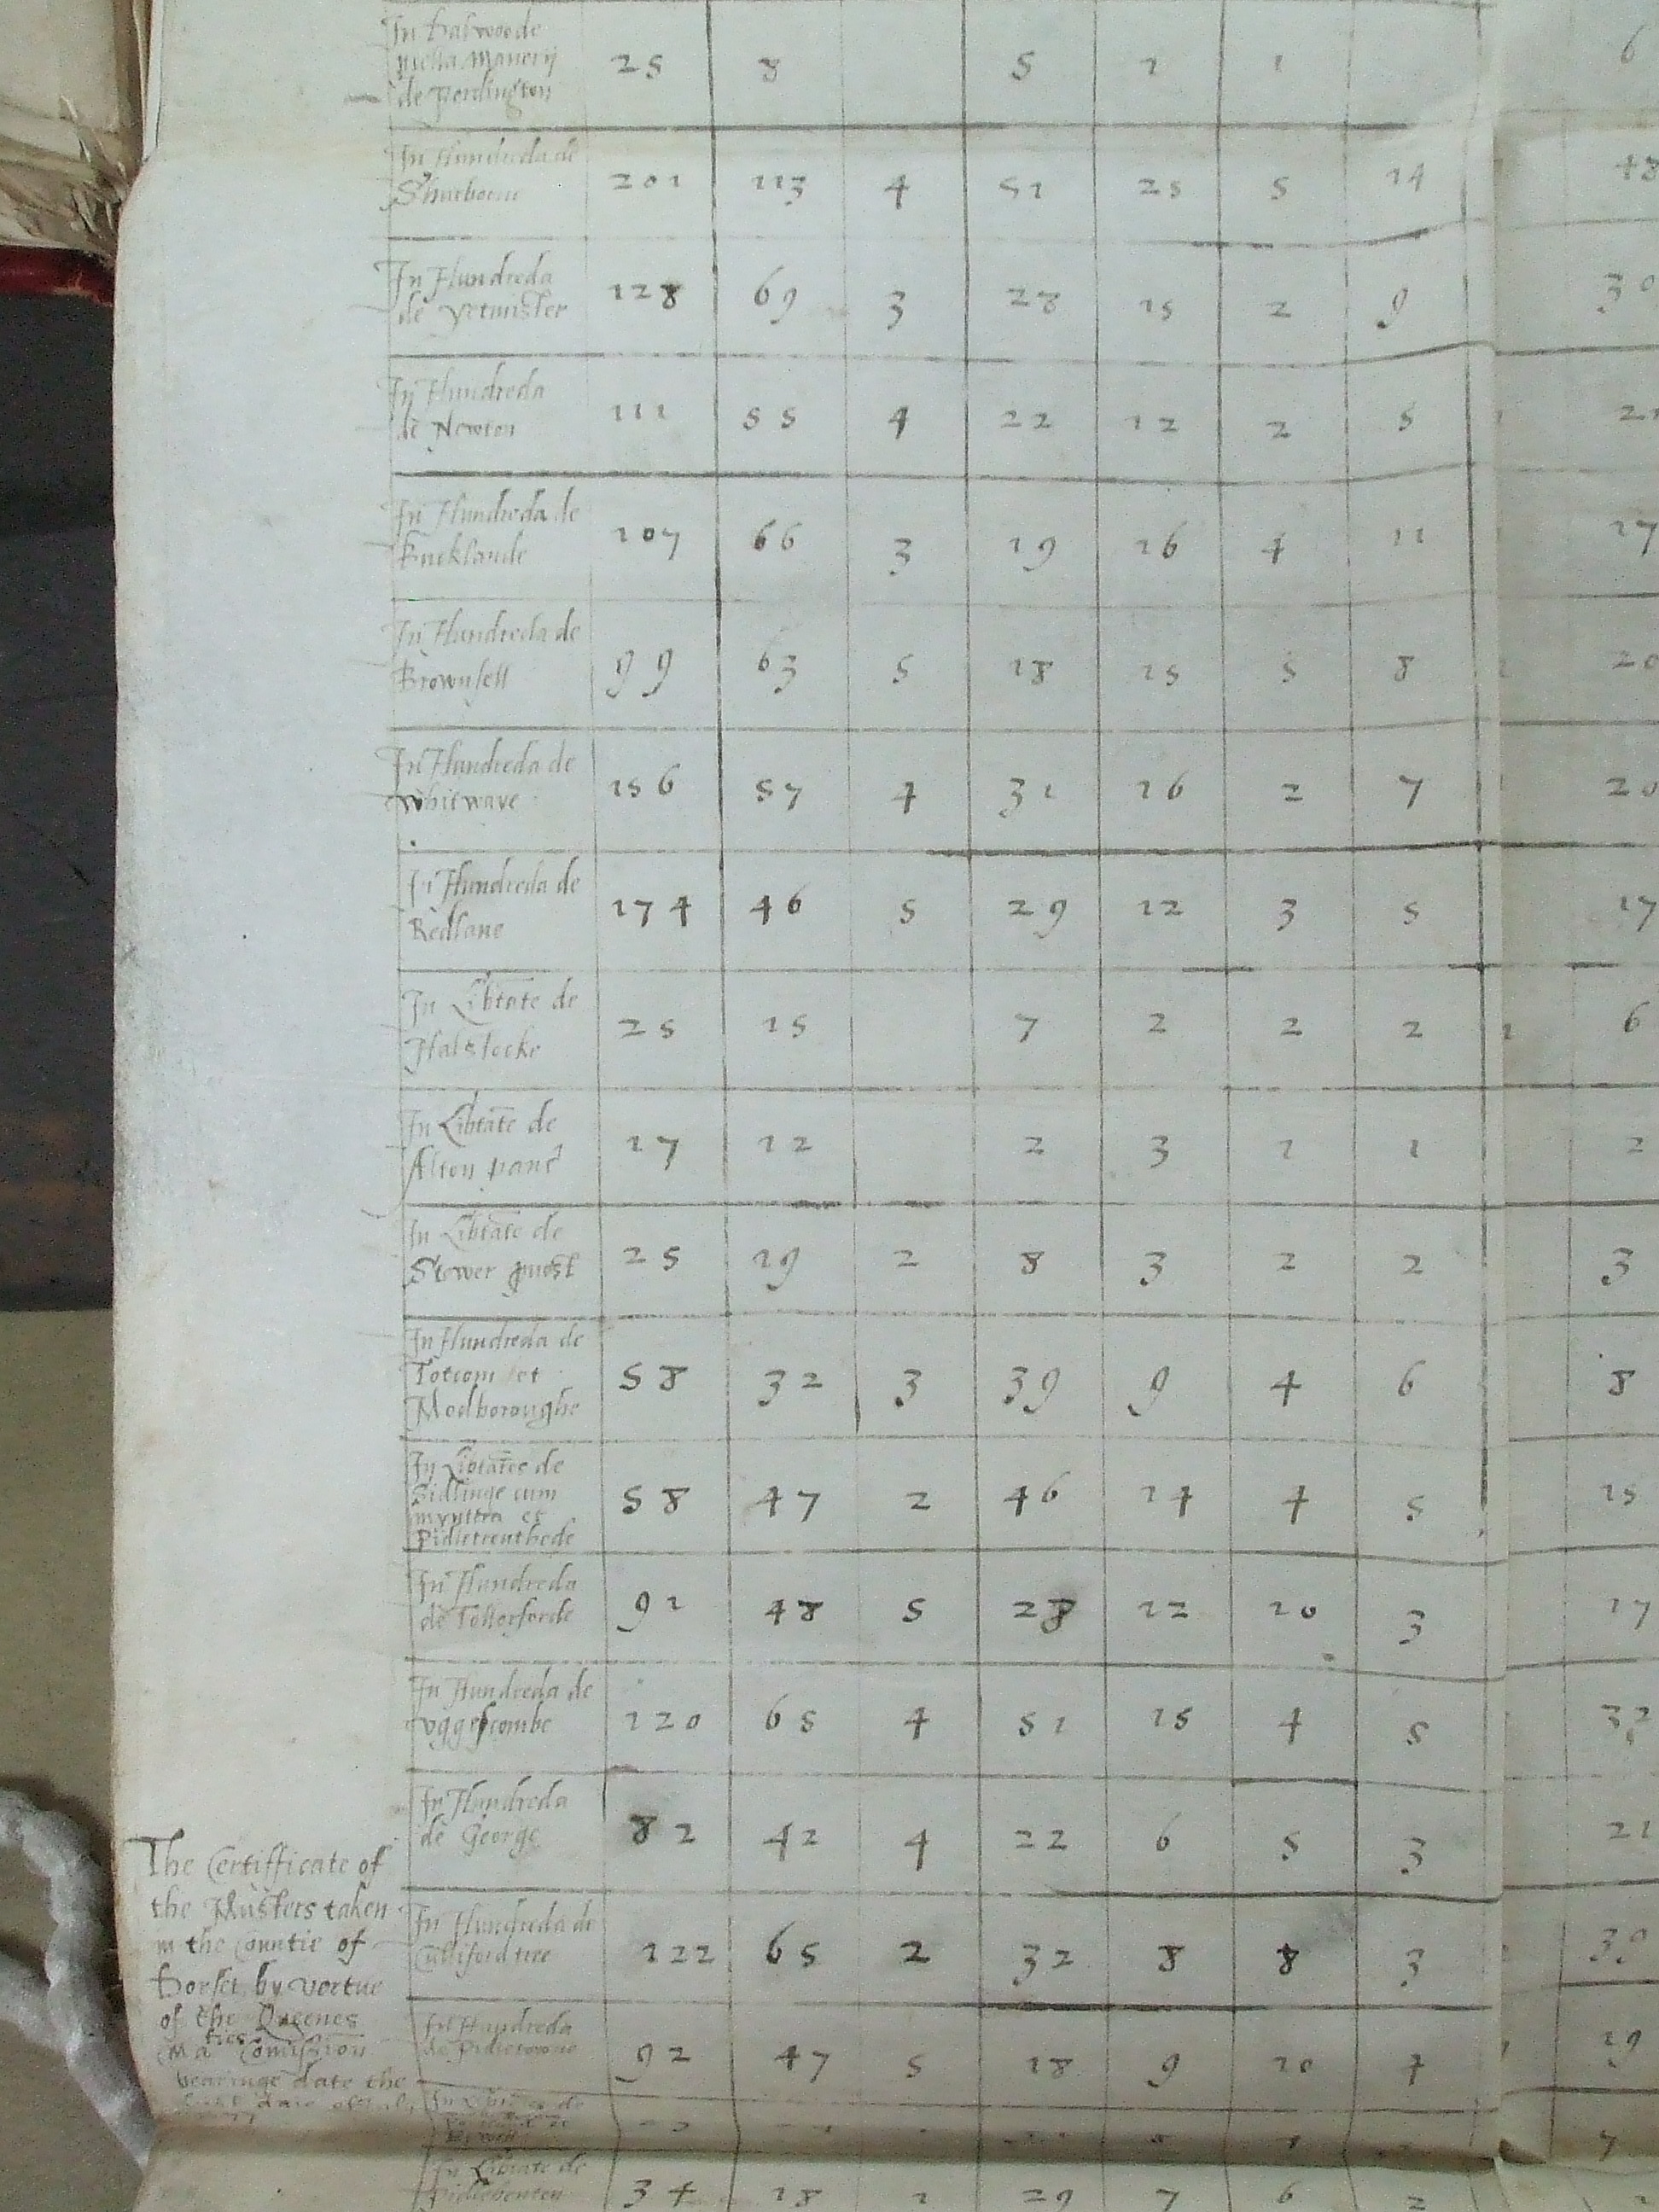 In Halwoode
de Fordington
25 8 5 1 1 6
In Hundreda de
Shirborne 201 113 4 51 25 5 14 48
In Hundreda
de Yetmister 128 69 3 28 15 2 9 30
In Hundreda
de Newton 111 55 4 22 12 2 5
In Hundreda de
Bucklande 107 66 3 19 16 4 11 17
In Hundreda de
Brownsell 99 63 5 18 15 5 8 20
In Hundreda de
whitwaye 156 57 4 31 16 2 7 20
In Hundreda de
Redlane 174 46 5 29 12 3 5 17
In Libtate de
Halstocke 25 15 7 2 2 2 6
In Libtate de
Alton panc 17 12 2 3 1 1 2
In Libtate de
Stower 25 19 2 8 3 2 2 3
In Hundreda de
Totcom et
Modboroughe
58 32 3 39 9 4 6 8
In Libtates de
Sidlinge cum
mynttrn et
Pidletrenthede
58 47 2 46 14 4 5 15
In Hundreda
de Tollerforde 91 48 5 28 12 10 3 17
In Hundreda de
vggescombe 120 65 4 51 15 4 5 32
In Hundreda
de George 82 42 4 22 6 5 3 21
In Hundreda de
Cullifordtree 122 65 2 32 8 8 3 30
In Hundreda
de Pidletowne 92 47 5 18 9 10 4 19
In Libtate de
7
In Libtate de
Pidlehenton 34 18 1 29 7 6 2
The Certifficate of
the Musters taken
in the Countie of
Dorset by vertue
of the Queenes
Ma ties Comission
bearinge date the